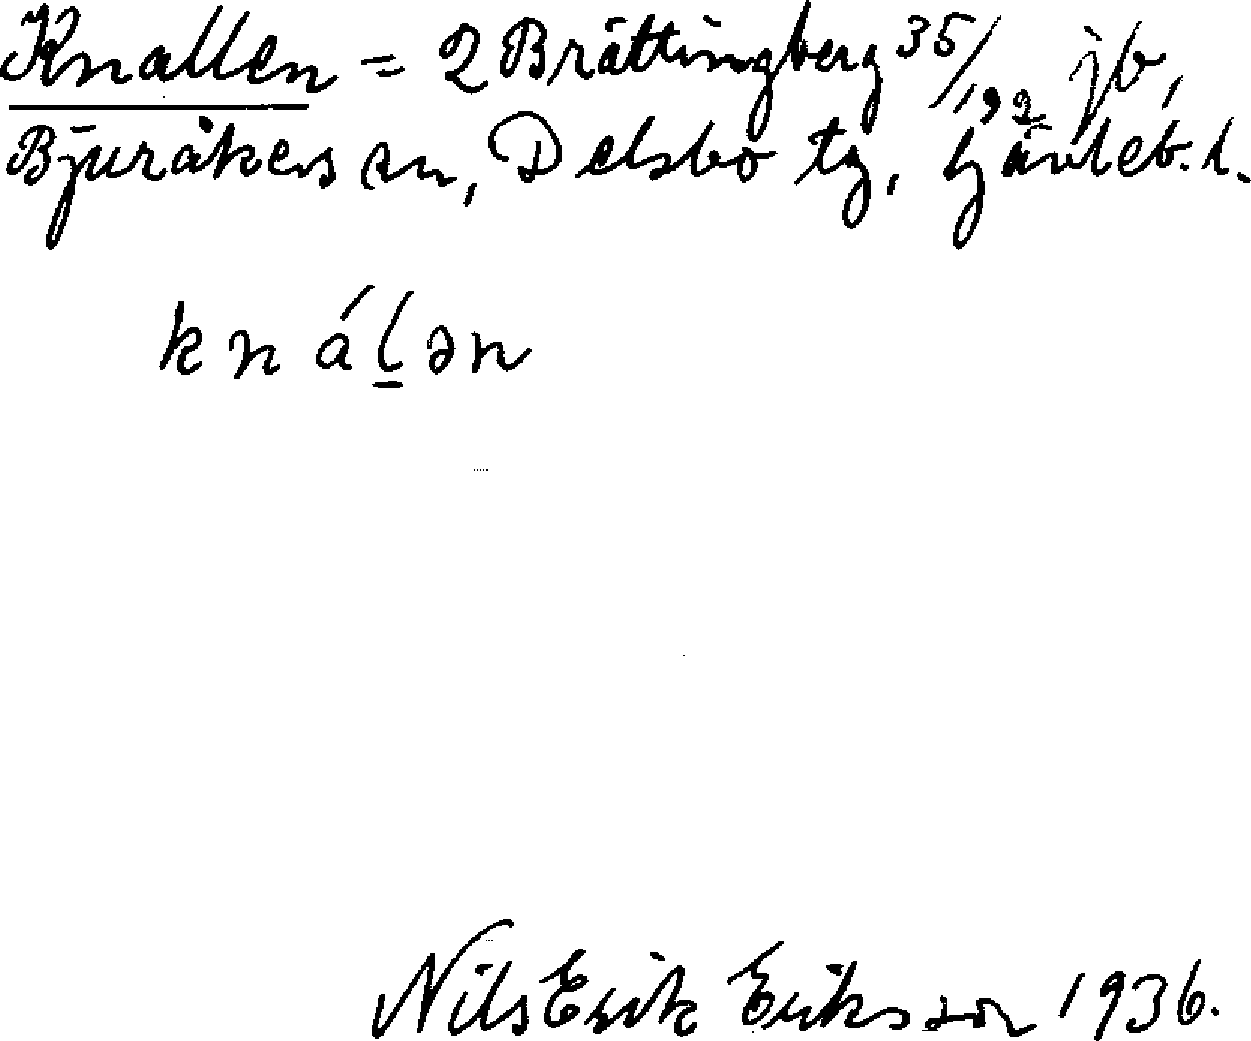 Knallen = 2 Brättingberg 35/192 jb,
Bjuråkers sn, Delsbo tg, Gävleb. l.
knálən
Nils Erik Eriksson 1936.